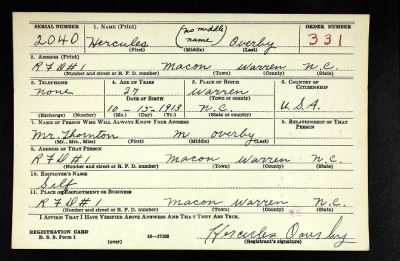 SERIAL NUMBER 1. NAME (Print) (no middle name) ORDER NUMBER
2040 Hercules Overby 331
(First) (Middle) (Last)
2. ADDRESS (Print)
R F D #1 Macon Warren N.C.
(Number and street or R. F. D. number) (Town) (County) (State)
3. TELEPHONE 4. AGE IN YEARS 5. PLACE OF BIRTH 6. COUNTRY OF CITIZENSHIP
none 27 Warren
DATE OF BIRTH (Town or county)
10-15-1913 N.C. U.S.A.
(Exchange) (Number) (Mo.) (Day) (Yr.) (State or country)
7. NAME OF PERSON WHO WILL ALWAYS KNOW YOUR ADDRESS 8. RELATIONSHIP OF THAT PERSON
Mr. Thornton M Overby
(Mr., Mrs., Miss) (First) (Middle) (Last)
9. ADDRESS OF THAT PERSON
R F D #1 Macon Warren N.C.
(Number and street or R. F. D. number) (Town) (County) (State)
10. EMPLOYER'S NAME
Self
11. PLACE OF EMPLOYMENT OR BUSINESS
R F D #1 Macon Warren N.C.
(Number and street or R. F. D. number) (Town) (County) (State)
I AFFIRM THAT I HAVE VERIFIED ABOVE ANSWERS AND THAT THEY ARE TRUE.
REGISTRATION CARD
D. S. S. Form 1 (over) 16-17105 Hercules Overby
(Registrant's signature)